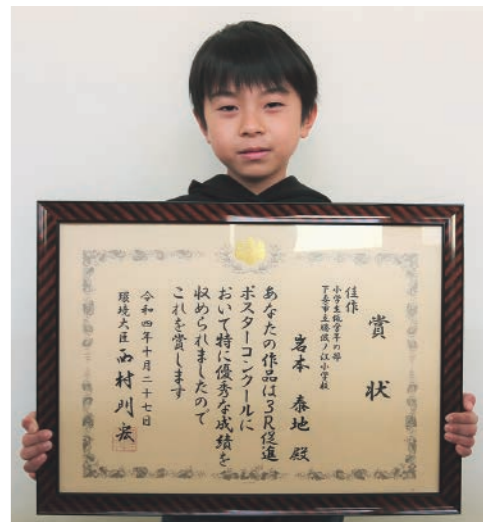 賞状
佳作
小学生低学年の部
下妻市立騰波ノ江小学校
岩本 泰地 殿
あなたの作品は3R促進
ポスターコンクールに
おいて特に優秀な成績を
収められましたので
これを賞します
令和四年十月二十七日
環境大臣 西村明宏